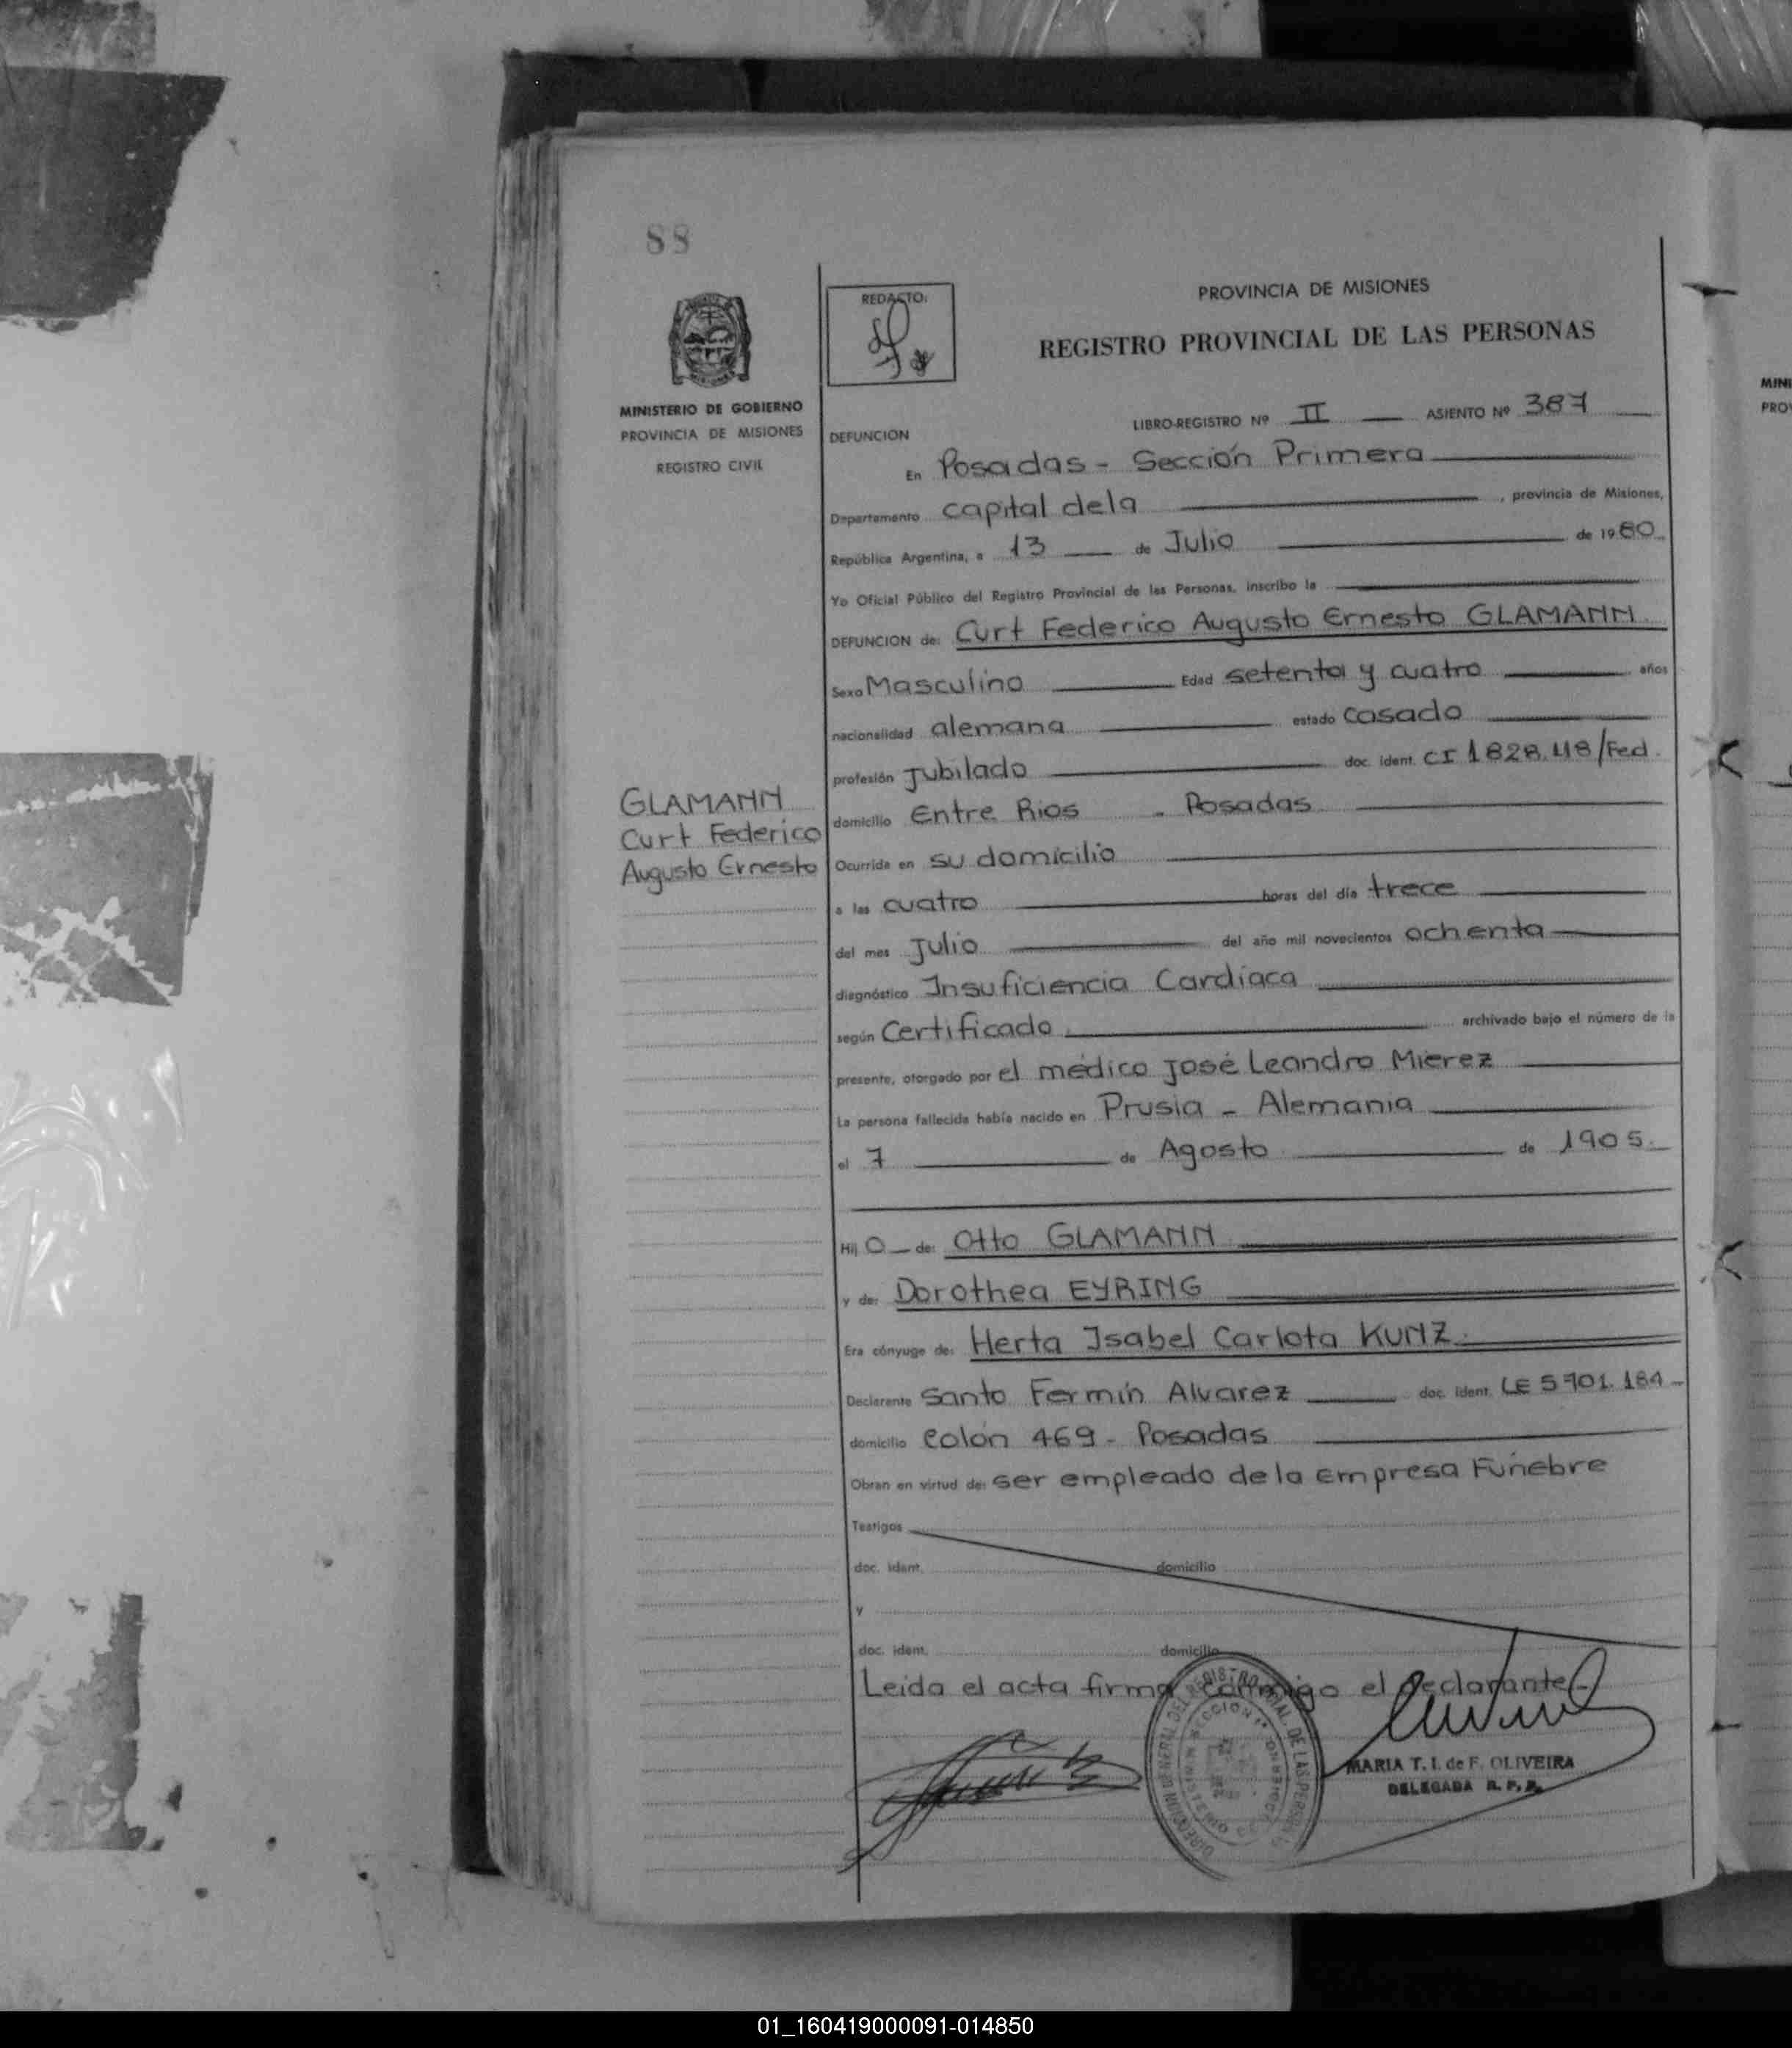 88
MINISTERIO DE GOBIERNO
PROVINCIA DE MISIONES
REGISTRO CIVIL
REDACTO:
PROVINCIA DE MISIONES
REGISTRO PROVINCIAL DE LAS PERSONAS
LIBRO-REGISTRO Nº II ASIENTO Nº 387
DEFUNCION
En Posadas - Sección Primera
Departamento capital dela , provincia de Misiones,
República Argentina, a 13 de Julio de 1980
Yo Oficial Público del Registro Provincial de las Personas, inscribo la
DEFUNCION de: Curt Federico Augusto Ernesto GLAMANN
Sexo Masculino Edad setenta y cuatro años
nacionalidad alemana estado casado
profesión jubilado doc. ident. CI 1828.118/Fed.
domicilio Entre Rios - Posadas
Ocurrida en su domicilio
a las cuatro horas del día trece
del mes Julio del año mil novecientos ochenta
diagnóstico Insuficiencia Cardíaca
según Certificado archivado bajo el número de la
presente, otorgado por el médico José Leandro Mierez
La persona fallecida había nacido en Prusia - Alemania
el 7 de Agosto de 1905.
Hij o de: Otto GLAMANN
y de: Dorothea EYRING
Era cónyuge de: Herta Isabel Carlota KUNZ.
Declarante Santo Fermín Alvarez doc. ident. LE 5701.184
domicilio Colón 469 - Posadas
Obran en virtud de: ser empleado de la Empresa Fúnebre
Testigos
doc. ident. domicilio
y
doc. ident. domicilio
Leida el acta firma conmigo el declarante.-
GLAMANN
Curt Federico
Augusto Ernesto
MARIA T. I. de F. OLIVEIRA
DELEGADA R. P. P.
MINI
PROV
01_160419000091-014850